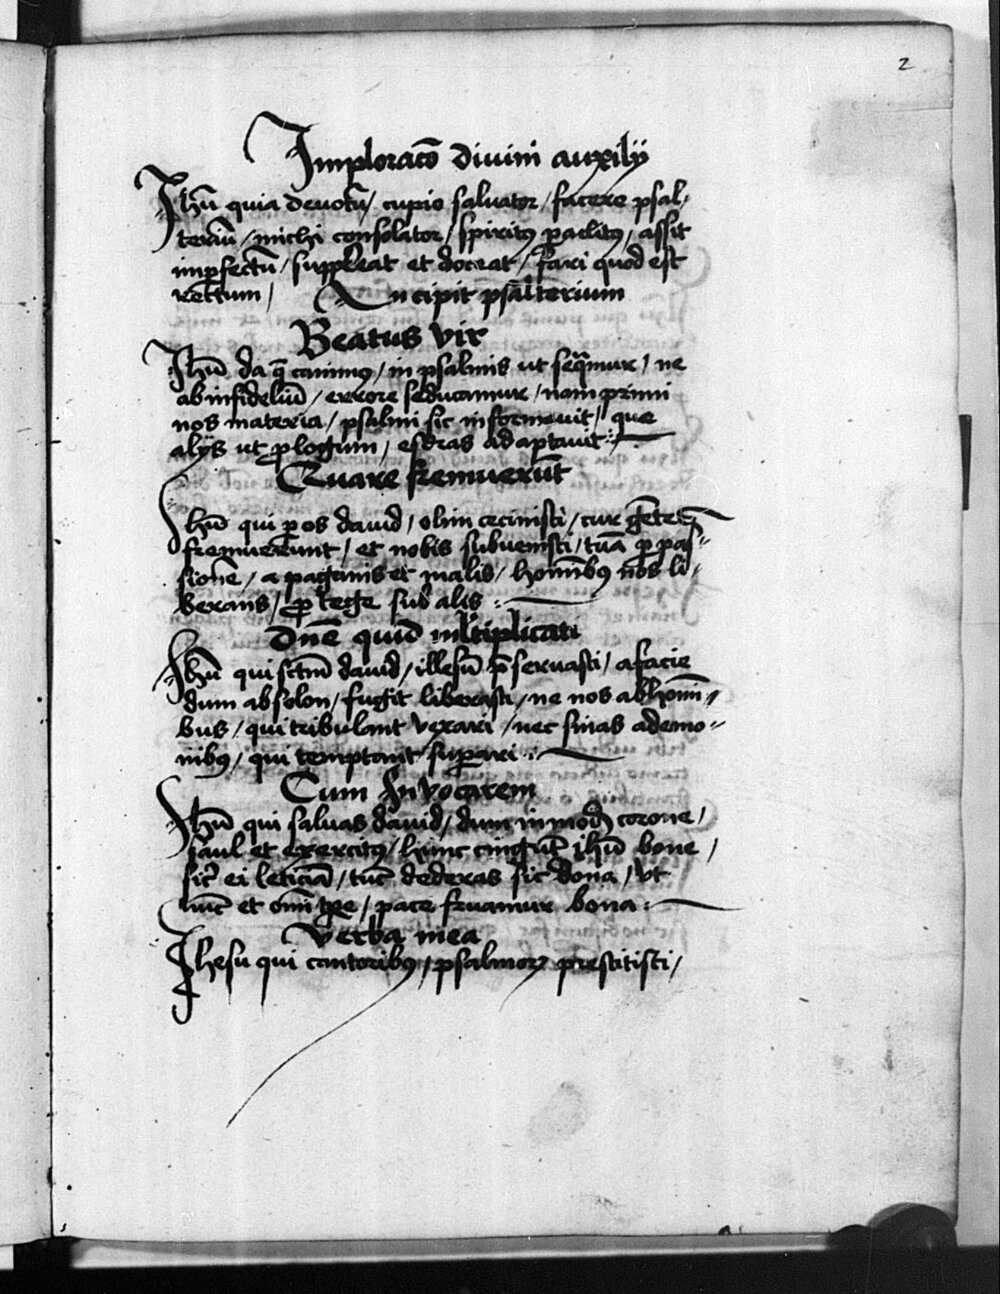 2
Imploracō divini auxilij
Jhū quia devotū / cupio salvator / facere psal /
teriū / michi consolator / spiritꝯ ꝑaclitꝯ / assit
imꝑfectū / suppleat et doceat / fari quod est
rectum / Incipit psalterium
Beatus vir
Jhū da q̄ canimꝯ / in psalmis ut seq̄mur / ne
ab infideliū / errore seducamur / nam primi
nos materia / psalmi sic informavit / que
alijs ut ꝓlogum / esdras adaptavit
Quare fremuerūt
Jhū qui ꝑ os david / olim cecinisti / cur gētes
fremuerunt / et nobis subvenisti / tuā ꝓ pas
sionē / a paganis et malis / hominibꝯ nos li /
berans / ꝓtege sub alis
Dnē quid mltiplicati
Jhū qui sctm̄ david / illesū p̄servasti / a facie
dum absolon / fugit liberasti / ne nos ab homī
bus / qui tribulant vexari / nec sinas a demo
nibꝯ / qui temptant suꝑari
Cum Invocarem
Jhū qui salvas david / dum in modū corone /
saul et exercitꝯ / hunc cingūt ihū bone /
sic ei leticiā / tūc dederas sic dona / ut
nūc et om̄i tꝑe / pace fruamur bona
Verba mea
Jhesu qui cantoribꝯ / psalmoꝝ prestitisti /